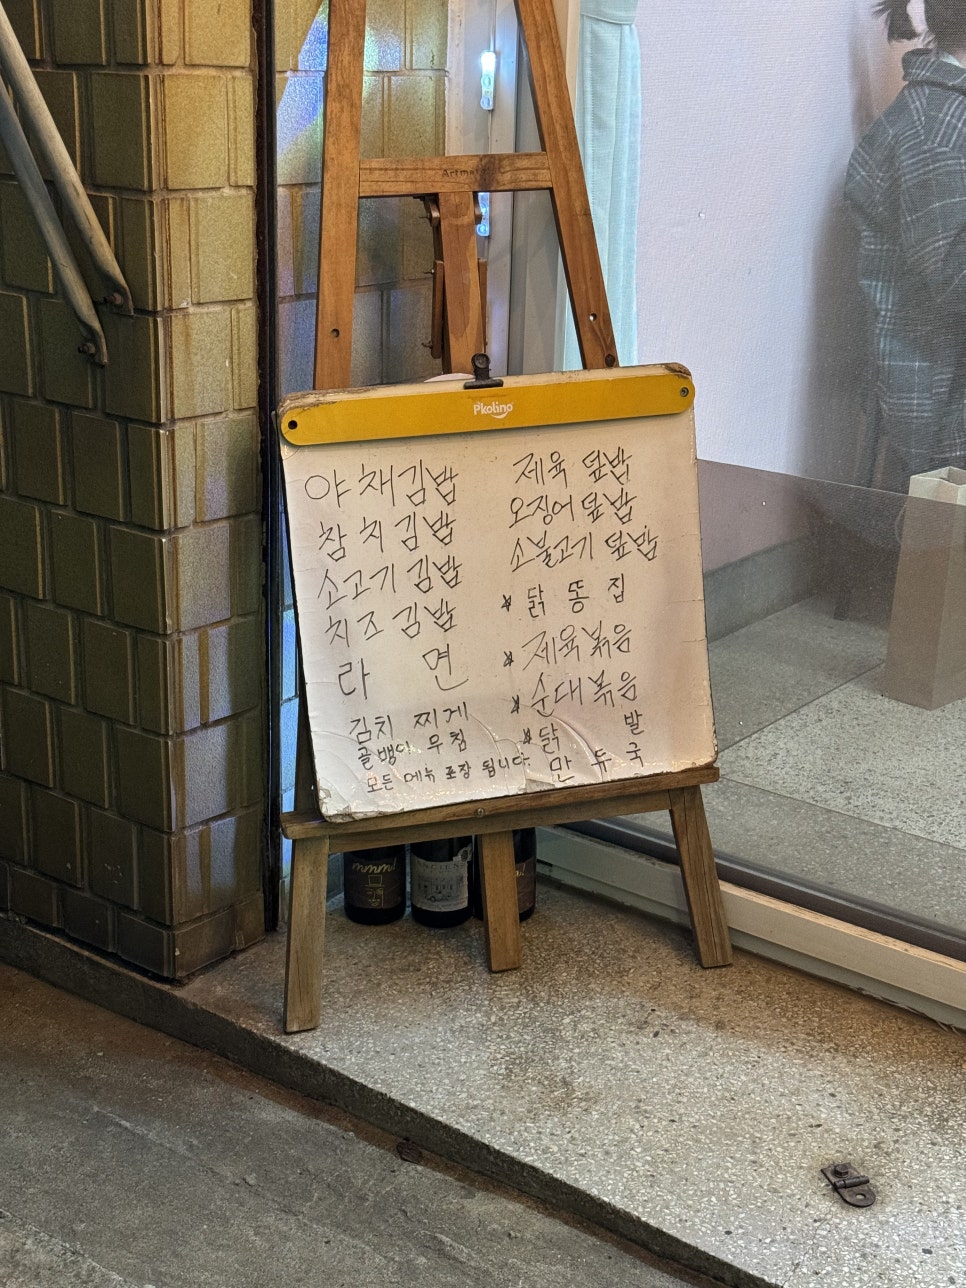 Artma
P'kolino
야채김밥
참치김밥
소고기김밥
치즈김밥
라면
김치찌게
골뱅이 무침
모든 메뉴 포장 됩니다.
제육덮밥
오징어덮밥
소불고기덮밥
* 닭똥집
* 제육볶음
* 순대볶음
* 닭발
만두국
mmm!